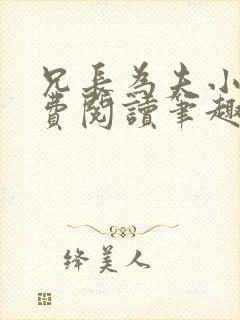 兄長為夫小
費閱讀筆趣
绛美人